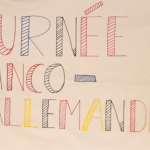 OURNÉE
ANCO-
ALLEMANDE